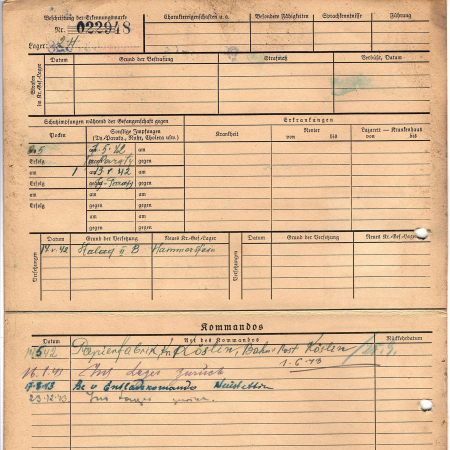 Beschriftung der Erkennungsmarke
Nr. 022948
Lager:
Charaktereigenschaften u. a.
Besondere Fähigkeiten
Sprachkenntnisse
Führung
Strafen im Kr.-Gef.-Lager
Datum
Grund der Bestrafung
Strafmaß
Verbüßt, Datum
Schutzimpfungen während der Gefangenschaft gegen
Erkrankungen
Pocken
Sonstige Impfungen
(Ty.-Paraty., Ruhr, Cholera usw.)
Krankheit
Revier
von bis
Lazarett — Krankenhaus
von bis
am 7.5.42 am
Erfolg gegen gegen
am 13.5.42 am
Erfolg gegen gegen
am am am
Erfolg gegen gegen
am am
gegen gegen
Versetzungen
Datum
Grund der Versetzung
Neues Kr.-Gef.-Lager
Versetzungen
Datum
Grund der Versetzung
Neues Kr.-Gef.-Lager
II B Hammerstein
Kommandos
Datum
Art des Kommandos
Rückkehrdatum
Papierfabrik in Köslin, Bahn + Post Köslin
1-6-43
Ins Lager zurück
17.8.43 Entladekommando Neustettin
23.12.43 Ins Lager zurück